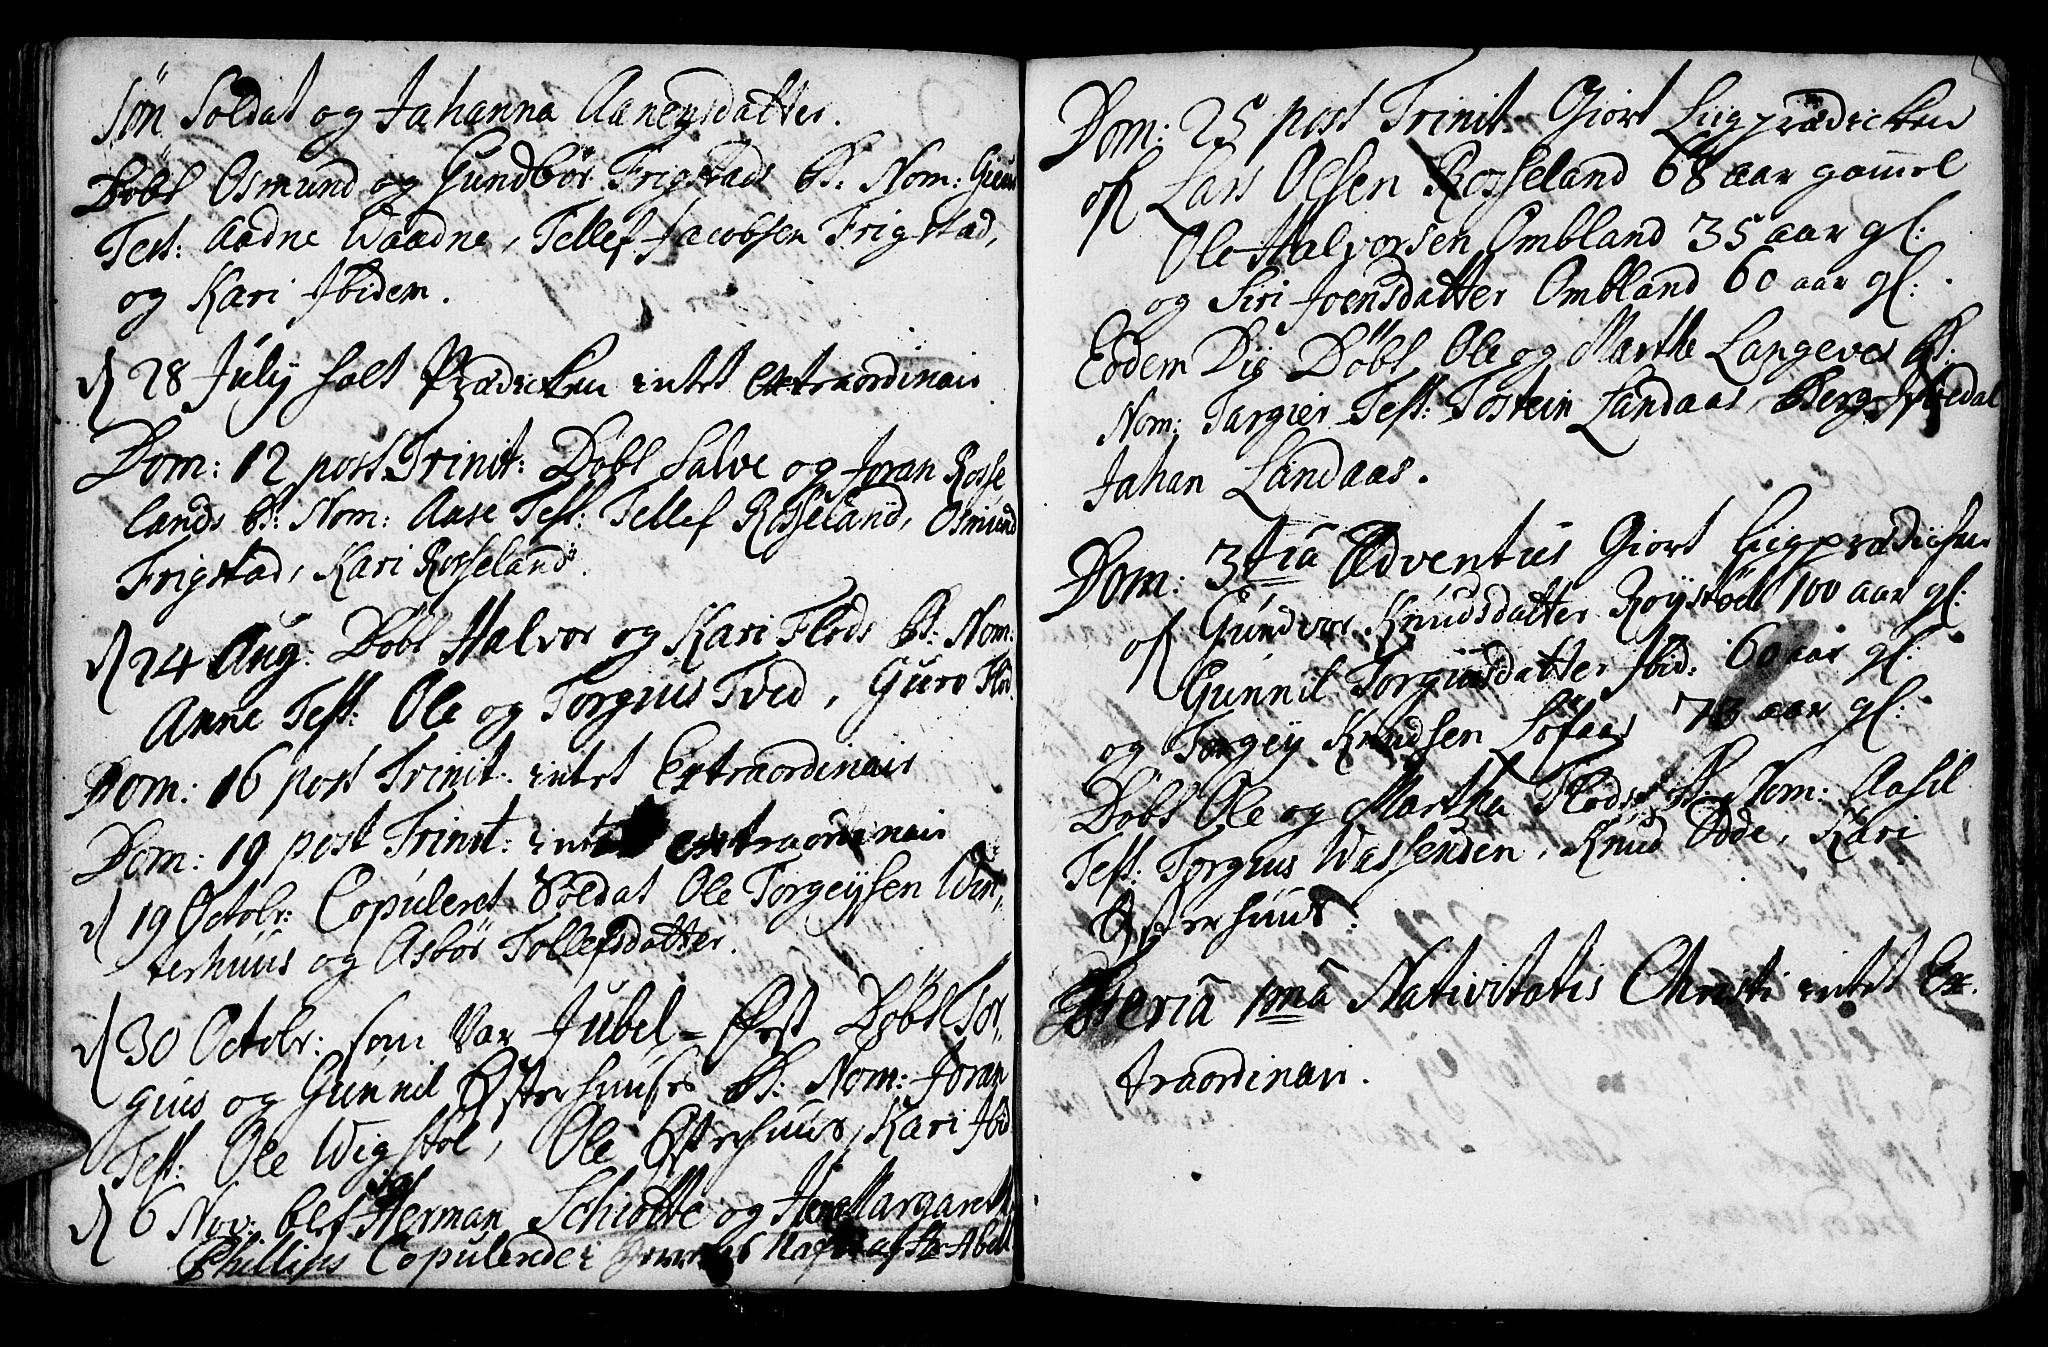 søn Soldat og Jahanna Aanensdatter.
Døbt Osmund og Gundbør Frigstads B: Nom:
Test: Aadne Waadne, Tellef Jacobsen Frigstad,
og Kari Ibidem.
d 28 July holt Prædicken intet extraordinair
Dom: 12 post Trinit: Døbt Salve og Joran Rosse
lands B: Nom: Aase Test: Tellef Rosseland, Osmund
Frigstad, Kari Rosseland.
d 24 Aug: Døbt Halvor og Kari Flods B: Nom:
Anne Test: Ole og Torgius Tved, Guro Flod.
Dom: 16 post Trinit: intet Extraordinair
Dom: 19 post Trinit: intet extraordinair
d 19 Octobr: Copuleret Soldat Ole Torgeysen Win,
terhuus og Asbör Tollefsdatter.
d 30 Octobr: som var Jubel-Fest Døbt Tor
gius og Gunnil Østerhuuses B: Nom: Joran
Test: Ole Wigstøl, Ole Østerhuus, Kari Ibid
d 6 Nov: blef Herman Schiøtte og Margareth
Phillips Copulerede af Hr Abel
Dom: 25 post Trinit: Giort Liigprædicken
of Lars Olsen Rosseland 68 aar gammel
Ole Halvorsen Ombland 35 aar gl:
og Siri Joensdatter Ombland 60 aar gl:
Eodem Die Døbt Ole og Marthe Langeves B:
Nom: Targier Test: Tostein Landaas, Berge
Jahan Landaas.
Dom: 3tia Adventus Giort Liigprædicken
of Gundvor Knudsdatter Røystøel 100 aar gl:
Gunnil Torgiusdatter Ibid: 60 aar gl:
og Torgey Knudsen Løfaas 73 aar gl:
Døbt Ole og Martha Flods B: Nom: Aasil
Test: Torgius Wassenden, Knud Odde, Kari
Østerhuus.
Feria 1ma Nativitatis Christi intet Ex-
traordinair.